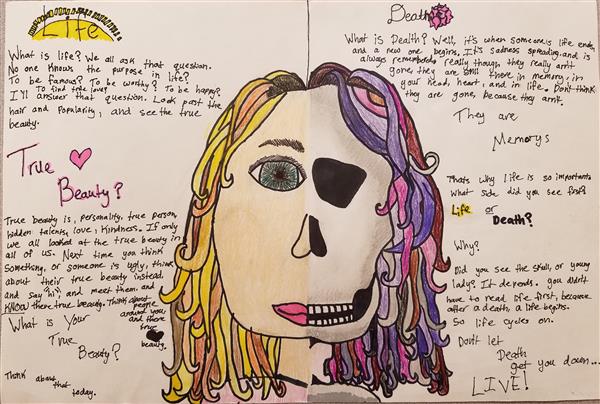 Life
What is life? We all ask that question.
No one knows the purpose in life?
To be famous? To be worthy? To be happy?
To find true love?
I'll answer that question. Look past the
hair and popularity, and see the true
beauty.
True
Beauty?
True beauty is, personality, true person,
hidden talents, love, kindness. If only
we all looked at the true beauty in
all of us. Next time you think
something, or someone is ugly, think
about their true beauty instead,
and say hi, and meet them, and
KNOW there true beauty. Think about
people
around you
and there
true
beauty.
What is Your
True
Beauty?
Think about
that
today.
Death
What is Dealth? Well, it's when someone's life ends,
and a new one begins. It's sadness spreading. and is
always remembered. really though, they really arn't
gone, they are still there in memory, in
your head, heart, and in life. Don't think
they are gone, because they arn't.
They are
Memorys
Thats why life is so important.
What side did you see first?
Life or
Death?
Why?
Did you see the skull, or young
lady? It depends. you didn't
have to read life first, because
after a death, a life begins.
So life cycles on.
Don't let
Death
get you down...
LIVE!